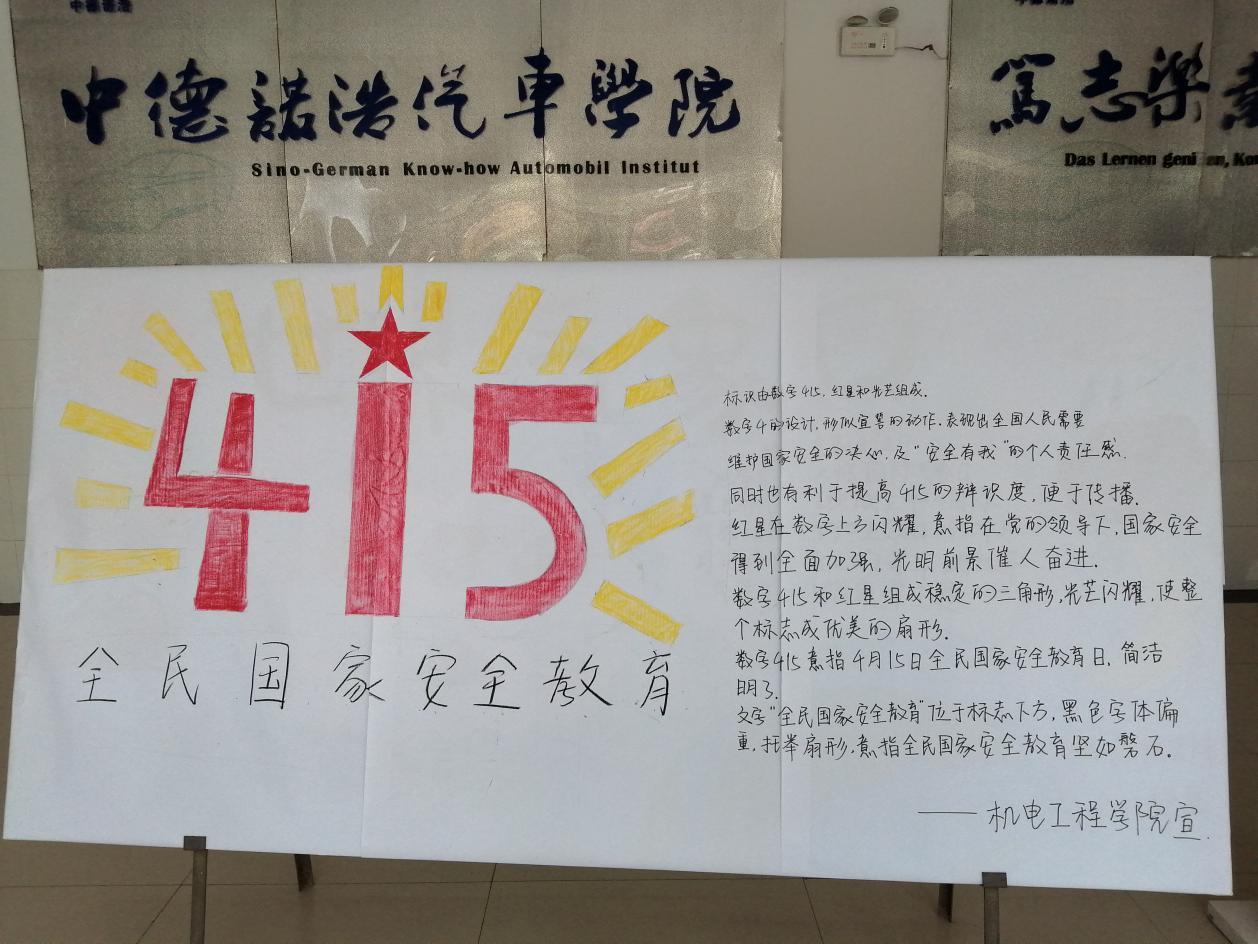 中德诺浩汽車學院
Sino-German Know-how Automobil Institut
篤志樂
Das Lernen
415
全民国家安全教育
标识由数字415,红星和光芒组成.
数字4的设计,形似宣誓的动作.表现出全国人民需要
维护国家安全的决心,及"安全有我"的个人责任感.
同时也有利于提高415的辩识度,便于传播.
红星在数字上方闪耀,意指在党的领导下,国家安全
得到全面加强,光明前景催人奋进.
数字415和红星组成稳定的三角形,光芒闪耀,使整
个标志成优美的扇形.
数字415意指4月15日全民国家安全教育日,简洁
明了.
文字"全民国家安全教育"位于标志下方,黑色字体偏
重,托举扇形,意指全民国家安全教育坚如磐石.
——机电工程学院宣.